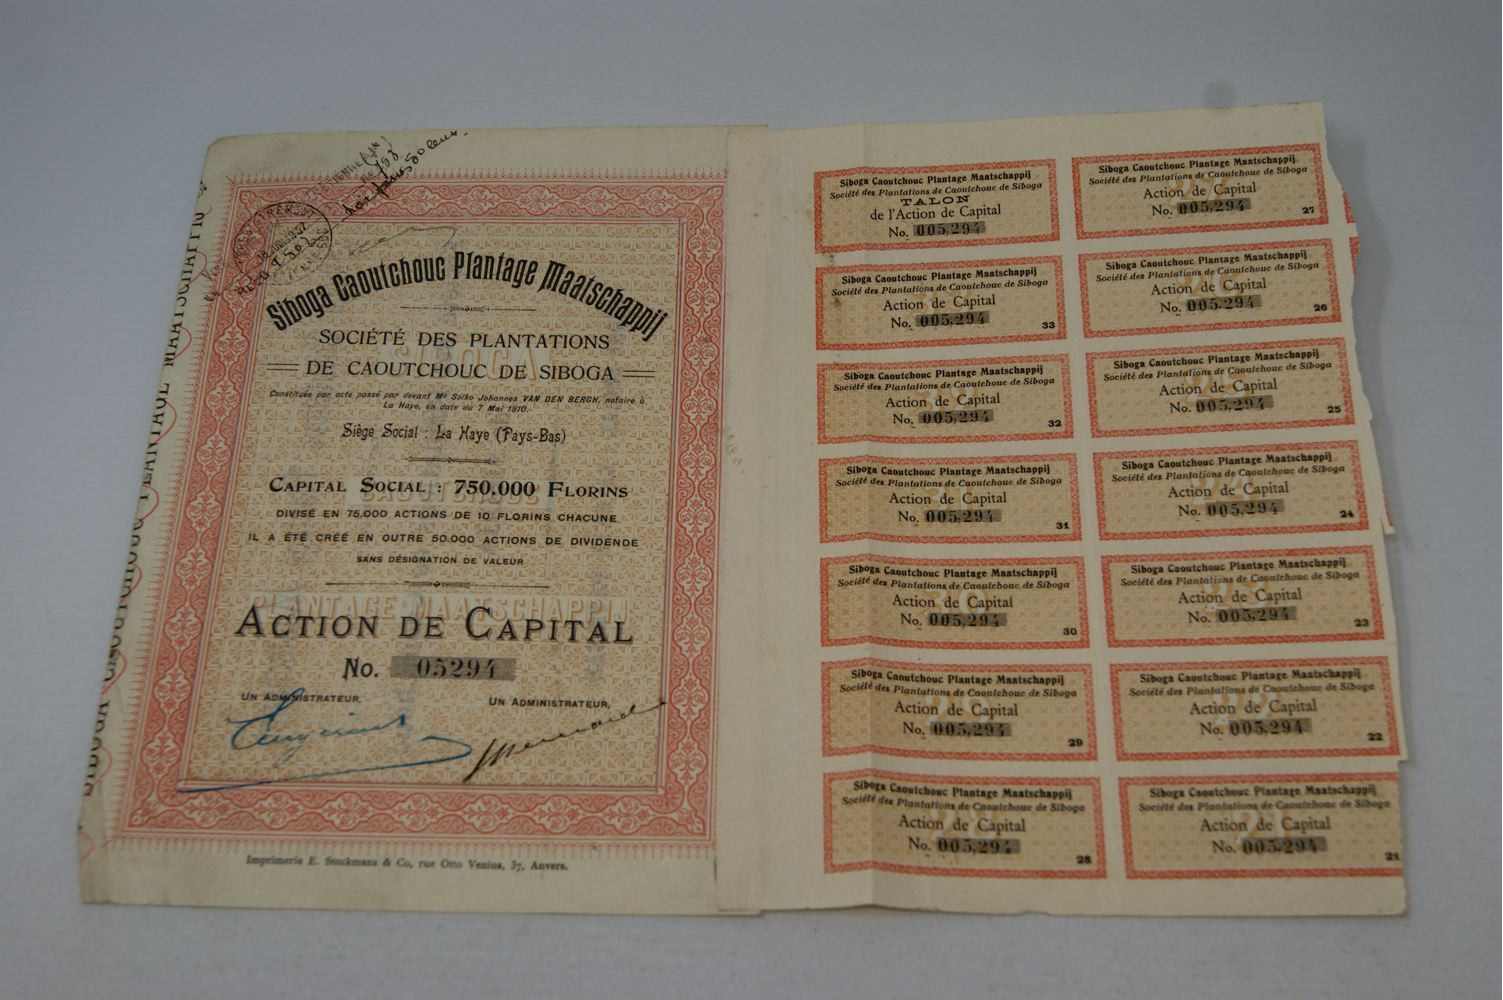 Siboga Caoutchouc Plantage Maatschappij
SOCIÉTÉ DES PLANTATIONS
DE CAOUTCHOUC DE SIBOGA
Constituée par acte passé par devant Me Solko Johannes VAN DEN BERGH, notaire à
La Haye, en date du 7 Mai 1910.
Siège Social : La Haye (Pays-Bas)
CAPITAL SOCIAL : 750.000 FLORINS
DIVISÉ EN 75.000 ACTIONS DE 10 FLORINS CHACUNE
IL A ÉTÉ CRÉÉ EN OUTRE 50.000 ACTIONS DE DIVIDENDE
SANS DÉSIGNATION DE VALEUR
PLANTAGE MAATSCHAPPIJ
ACTION DE CAPITAL
No. 05294
UN ADMINISTRATEUR,
UN ADMINISTRATEUR,
Imprimerie E. Stockmans & Co, rue Otto Venius, 37, Anvers.
SIBOGA CAOUTCHOUC PLANTAGE MAATSCHAPPIJ
Siboga Caoutchouc Plantage Maatschappij
Société des Plantations de Caoutchouc de Siboga
TALON
de l'Action de Capital
No. 005,294
Siboga Caoutchouc Plantage Maatschappij
Société des Plantations de Caoutchouc de Siboga
Action de Capital
No. 005,294
33
Siboga Caoutchouc Plantage Maatschappij
Société des Plantations de Caoutchouc de Siboga
Action de Capital
No. 005,294
32
Siboga Caoutchouc Plantage Maatschappij
Société des Plantations de Caoutchouc de Siboga
Action de Capital
No. 005,294
31
Siboga Caoutchouc Plantage Maatschappij
Société des Plantations de Caoutchouc de Siboga
Action de Capital
No. 005,294
30
Siboga Caoutchouc Plantage Maatschappij
Société des Plantations de Caoutchouc de Siboga
Action de Capital
No. 005,294
29
Siboga Caoutchouc Plantage Maatschappij
Société des Plantations de Caoutchouc de Siboga
Action de Capital
No. 005,294
28
Siboga Caoutchouc Plantage Maatschappij
Société des Plantations de Caoutchouc de Siboga
Action de Capital
No. 005,294
27
Siboga Caoutchouc Plantage Maatschappij
Société des Plantations de Caoutchouc de Siboga
Action de Capital
No. 005,294
26
Siboga Caoutchouc Plantage Maatschappij
Société des Plantations de Caoutchouc de Siboga
Action de Capital
No. 005,294
25
Siboga Caoutchouc Plantage Maatschappij
Société des Plantations de Caoutchouc de Siboga
Action de Capital
No. 005,294
24
Siboga Caoutchouc Plantage Maatschappij
Société des Plantations de Caoutchouc de Siboga
Action de Capital
No. 005,294
23
Siboga Caoutchouc Plantage Maatschappij
Société des Plantations de Caoutchouc de Siboga
Action de Capital
No. 005,294
22
Siboga Caoutchouc Plantage Maatschappij
Société des Plantations de Caoutchouc de Siboga
Action de Capital
No. 005,294
21